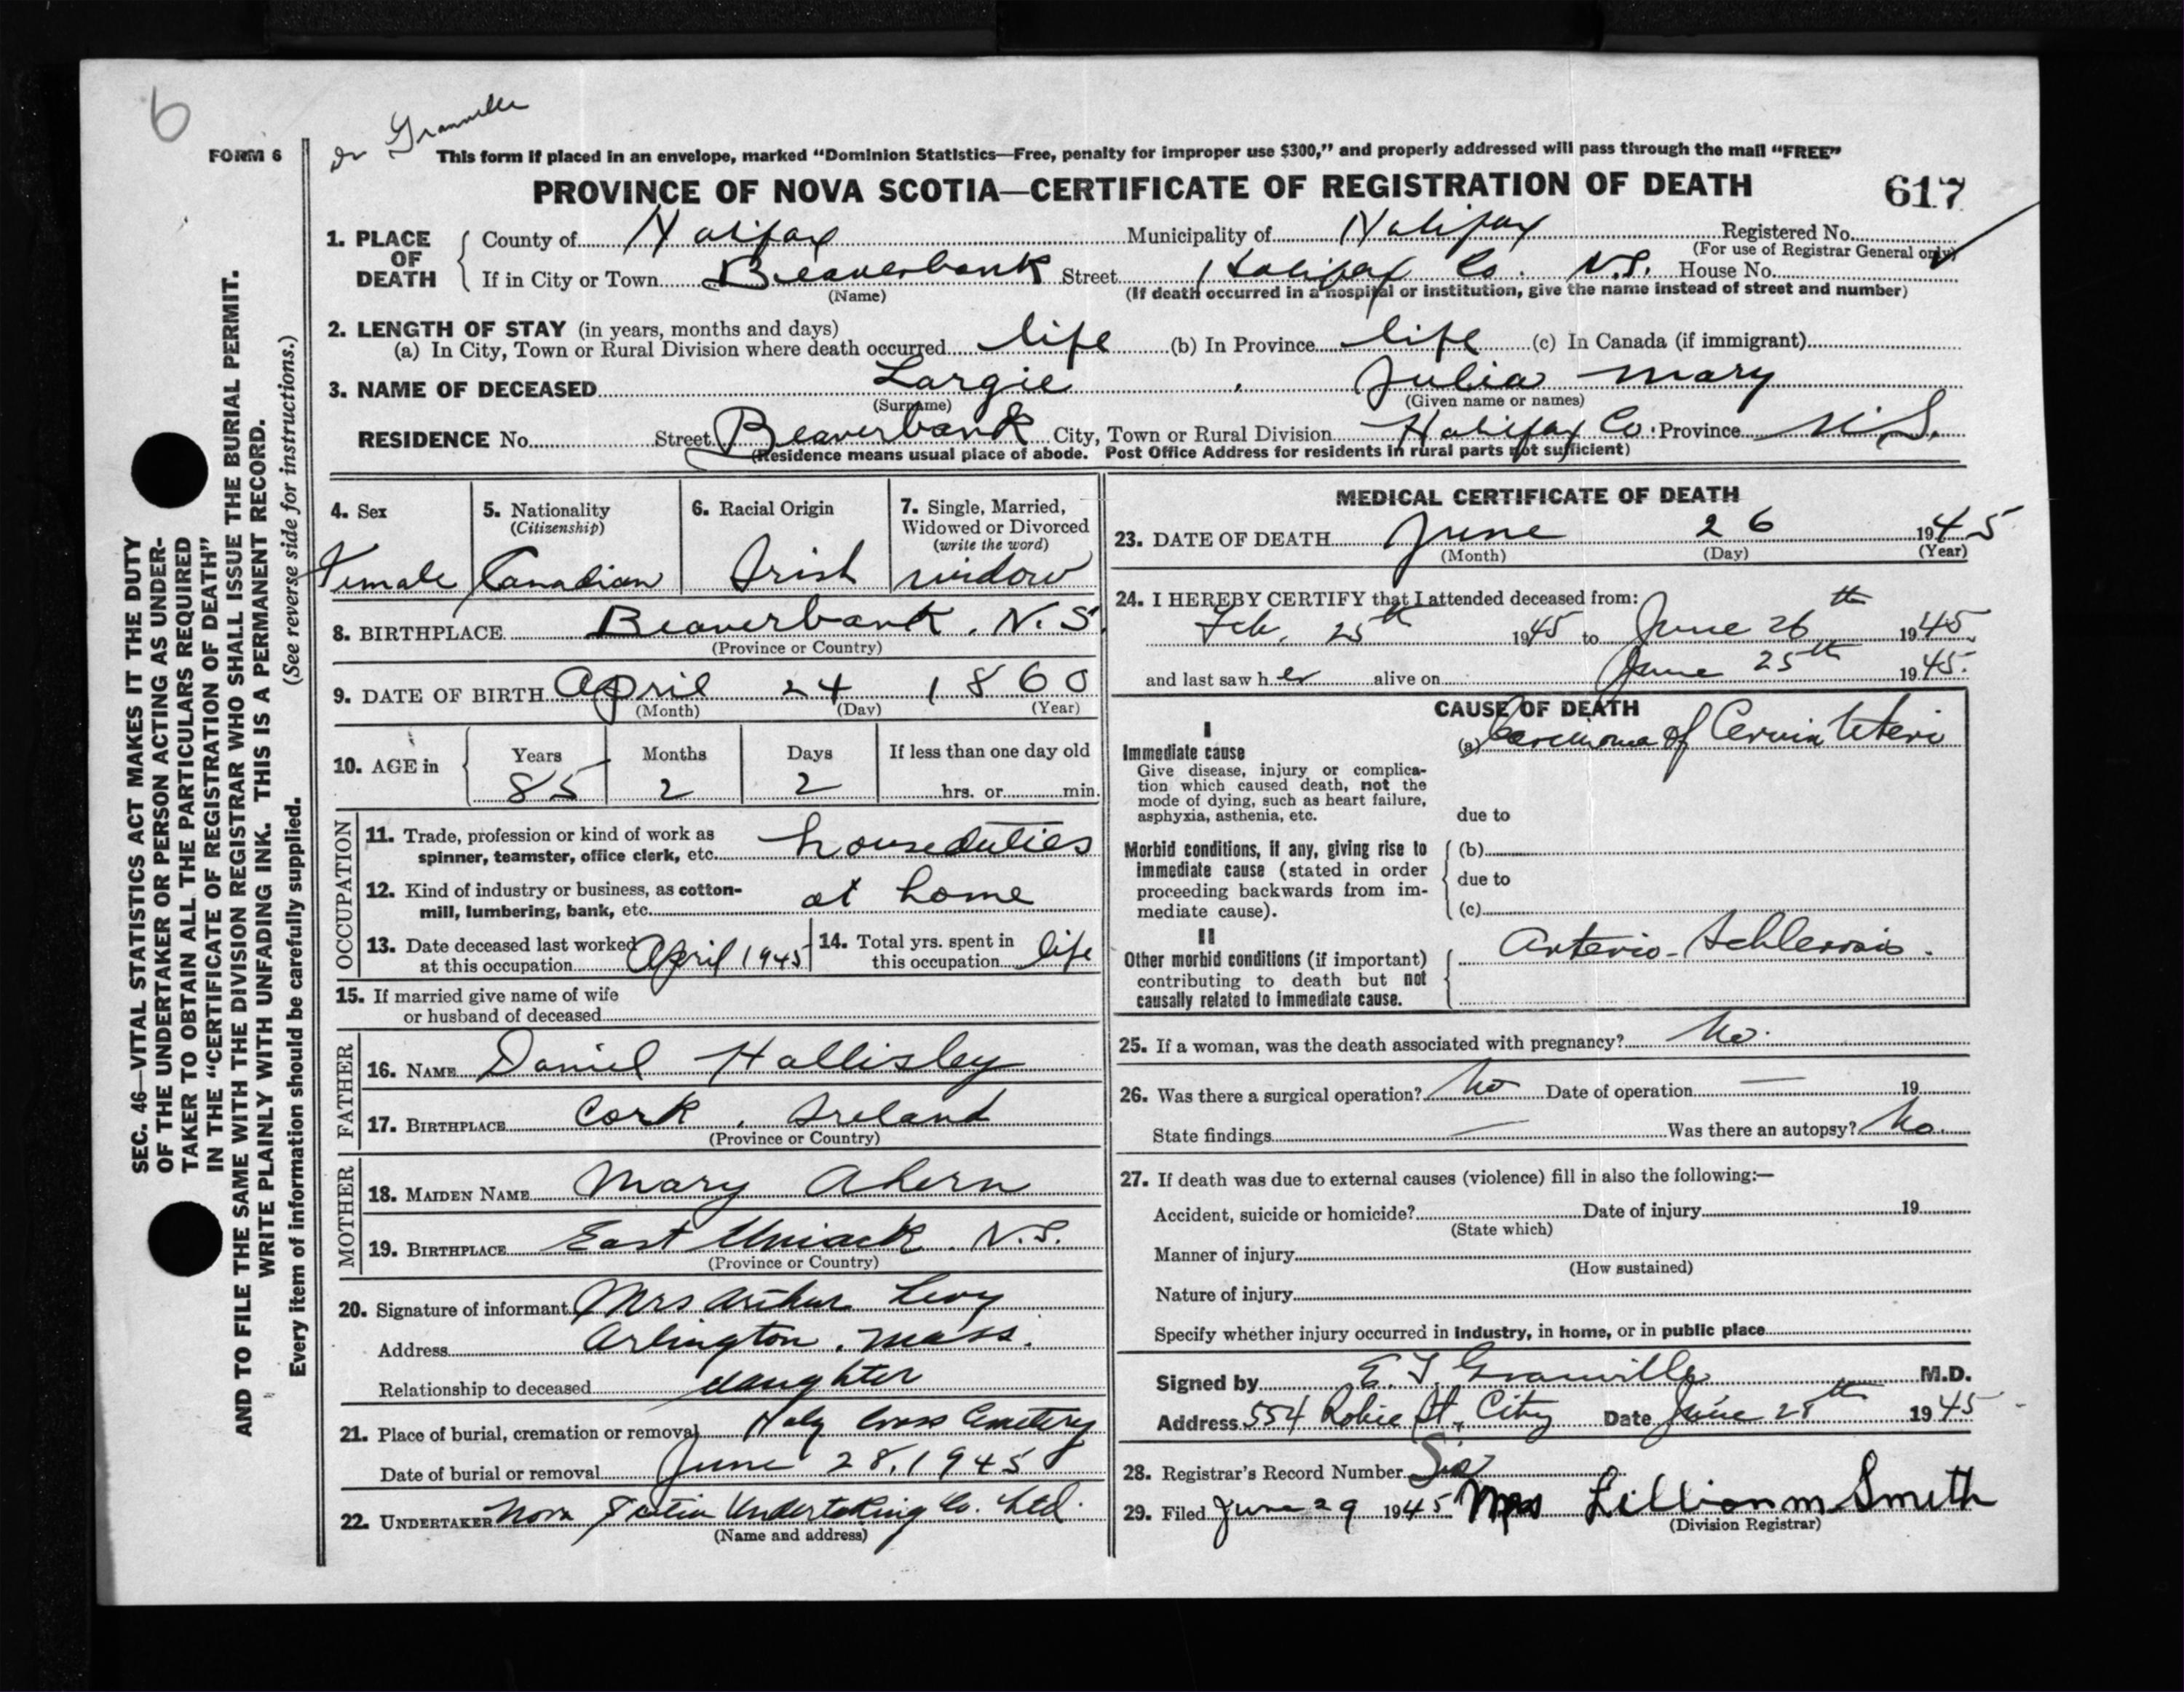 6
Dr Granville
FORM 6
This form if placed in an envelope, marked "Dominion Statistics—Free, penalty for improper use $300," and properly addressed will pass through the mail "FREE"
PROVINCE OF NOVA SCOTIA—CERTIFICATE OF REGISTRATION OF DEATH
617
1. PLACE OF DEATH
County of Halifax Municipality of Halifax Registered No.
(For use of Registrar General only)
If in City or Town Beaverbank Street Halifax Co. N.S. House No.
(Name) (If death occurred in a hospital or institution, give the name instead of street and number)
2. LENGTH OF STAY (in years, months and days)
(a) In City, Town or Rural Division where death occurred life (b) In Province life (c) In Canada (if immigrant)
3. NAME OF DECEASED Largie, Julia Mary
(Surname) (Given name or names)
RESIDENCE No. Street Beaverbank City, Town or Rural Division Halifax Co. Province N.S.
(Residence means usual place of abode. Post Office Address for residents in rural parts not sufficient)
4. Sex
Female
5. Nationality
(Citizenship)
Canadian
6. Racial Origin
Irish
7. Single, Married,
Widowed or Divorced
(write the word)
widow
8. BIRTHPLACE Beaverbank, N.S.
(Province or Country)
9. DATE OF BIRTH April 24 1860
(Month) (Day) (Year)
10. AGE in
Years Months Days If less than one day old
85 2 2 hrs. or min.
OCCUPATION
11. Trade, profession or kind of work as
spinner, teamster, office clerk, etc. houseduties
12. Kind of industry or business, as cotton-
mill, lumbering, bank, etc. at home
13. Date deceased last worked
at this occupation April 1945
14. Total yrs. spent in
this occupation life
15. If married give name of wife
or husband of deceased
FATHER
16. NAME Daniel Hallisley
17. BIRTHPLACE Cork, Ireland
(Province or Country)
MOTHER
18. MAIDEN NAME Mary Ahern
19. BIRTHPLACE East Uniack. N.S.
(Province or Country)
20. Signature of informant Mrs Arthur Levy
Address Arlington, Mass.
Relationship to deceased daughter
21. Place of burial, cremation or removal Holy Cross Cemetery
Date of burial or removal June 28, 1945
22. UNDERTAKER Nova Scotia Undertaking Co. Ltd.
(Name and address)
MEDICAL CERTIFICATE OF DEATH
23. DATE OF DEATH June 26 1945
(Month) (Day) (Year)
24. I HEREBY CERTIFY that I attended deceased from:
Feb. 25th 1945 to June 26th 1945
and last saw her alive on June 25th 1945.
CAUSE OF DEATH
I
Immediate cause
Give disease, injury or complica-
tion which caused death, not the
mode of dying, such as heart failure,
asphyxia, asthenia, etc.
(a) Carcinoma of Cervix Uteri
due to
Morbid conditions, if any, giving rise to
immediate cause (stated in order
proceeding backwards from im-
mediate cause).
(b)
due to
(c)
II
Other morbid conditions (if important)
contributing to death but not
causally related to immediate cause.
Arterio-Schlerosis.
25. If a woman, was the death associated with pregnancy? No.
26. Was there a surgical operation? No Date of operation — 19
State findings — Was there an autopsy? No.
27. If death was due to external causes (violence) fill in also the following:—
Accident, suicide or homicide? Date of injury 19
(State which)
Manner of injury
(How sustained)
Nature of injury
Specify whether injury occurred in industry, in home, or in public place
Signed by E. T. Granville M.D.
Address 554 Robie St. City Date June 28th 1945
28. Registrar's Record Number Six
29. Filed June 29 1945 Mrs Lillian M Smith
(Division Registrar)
SEC. 46—VITAL STATISTICS ACT MAKES IT THE DUTY
OF THE UNDERTAKER OR PERSON ACTING AS UNDER-
TAKER TO OBTAIN ALL THE PARTICULARS REQUIRED
IN THE "CERTIFICATE OF REGISTRATION OF DEATH"
AND TO FILE THE SAME WITH THE DIVISION REGISTRAR WHO SHALL ISSUE THE BURIAL PERMIT.
WRITE PLAINLY WITH UNFADING INK. THIS IS A PERMANENT RECORD.
Every item of information should be carefully supplied. (See reverse side for instructions.)